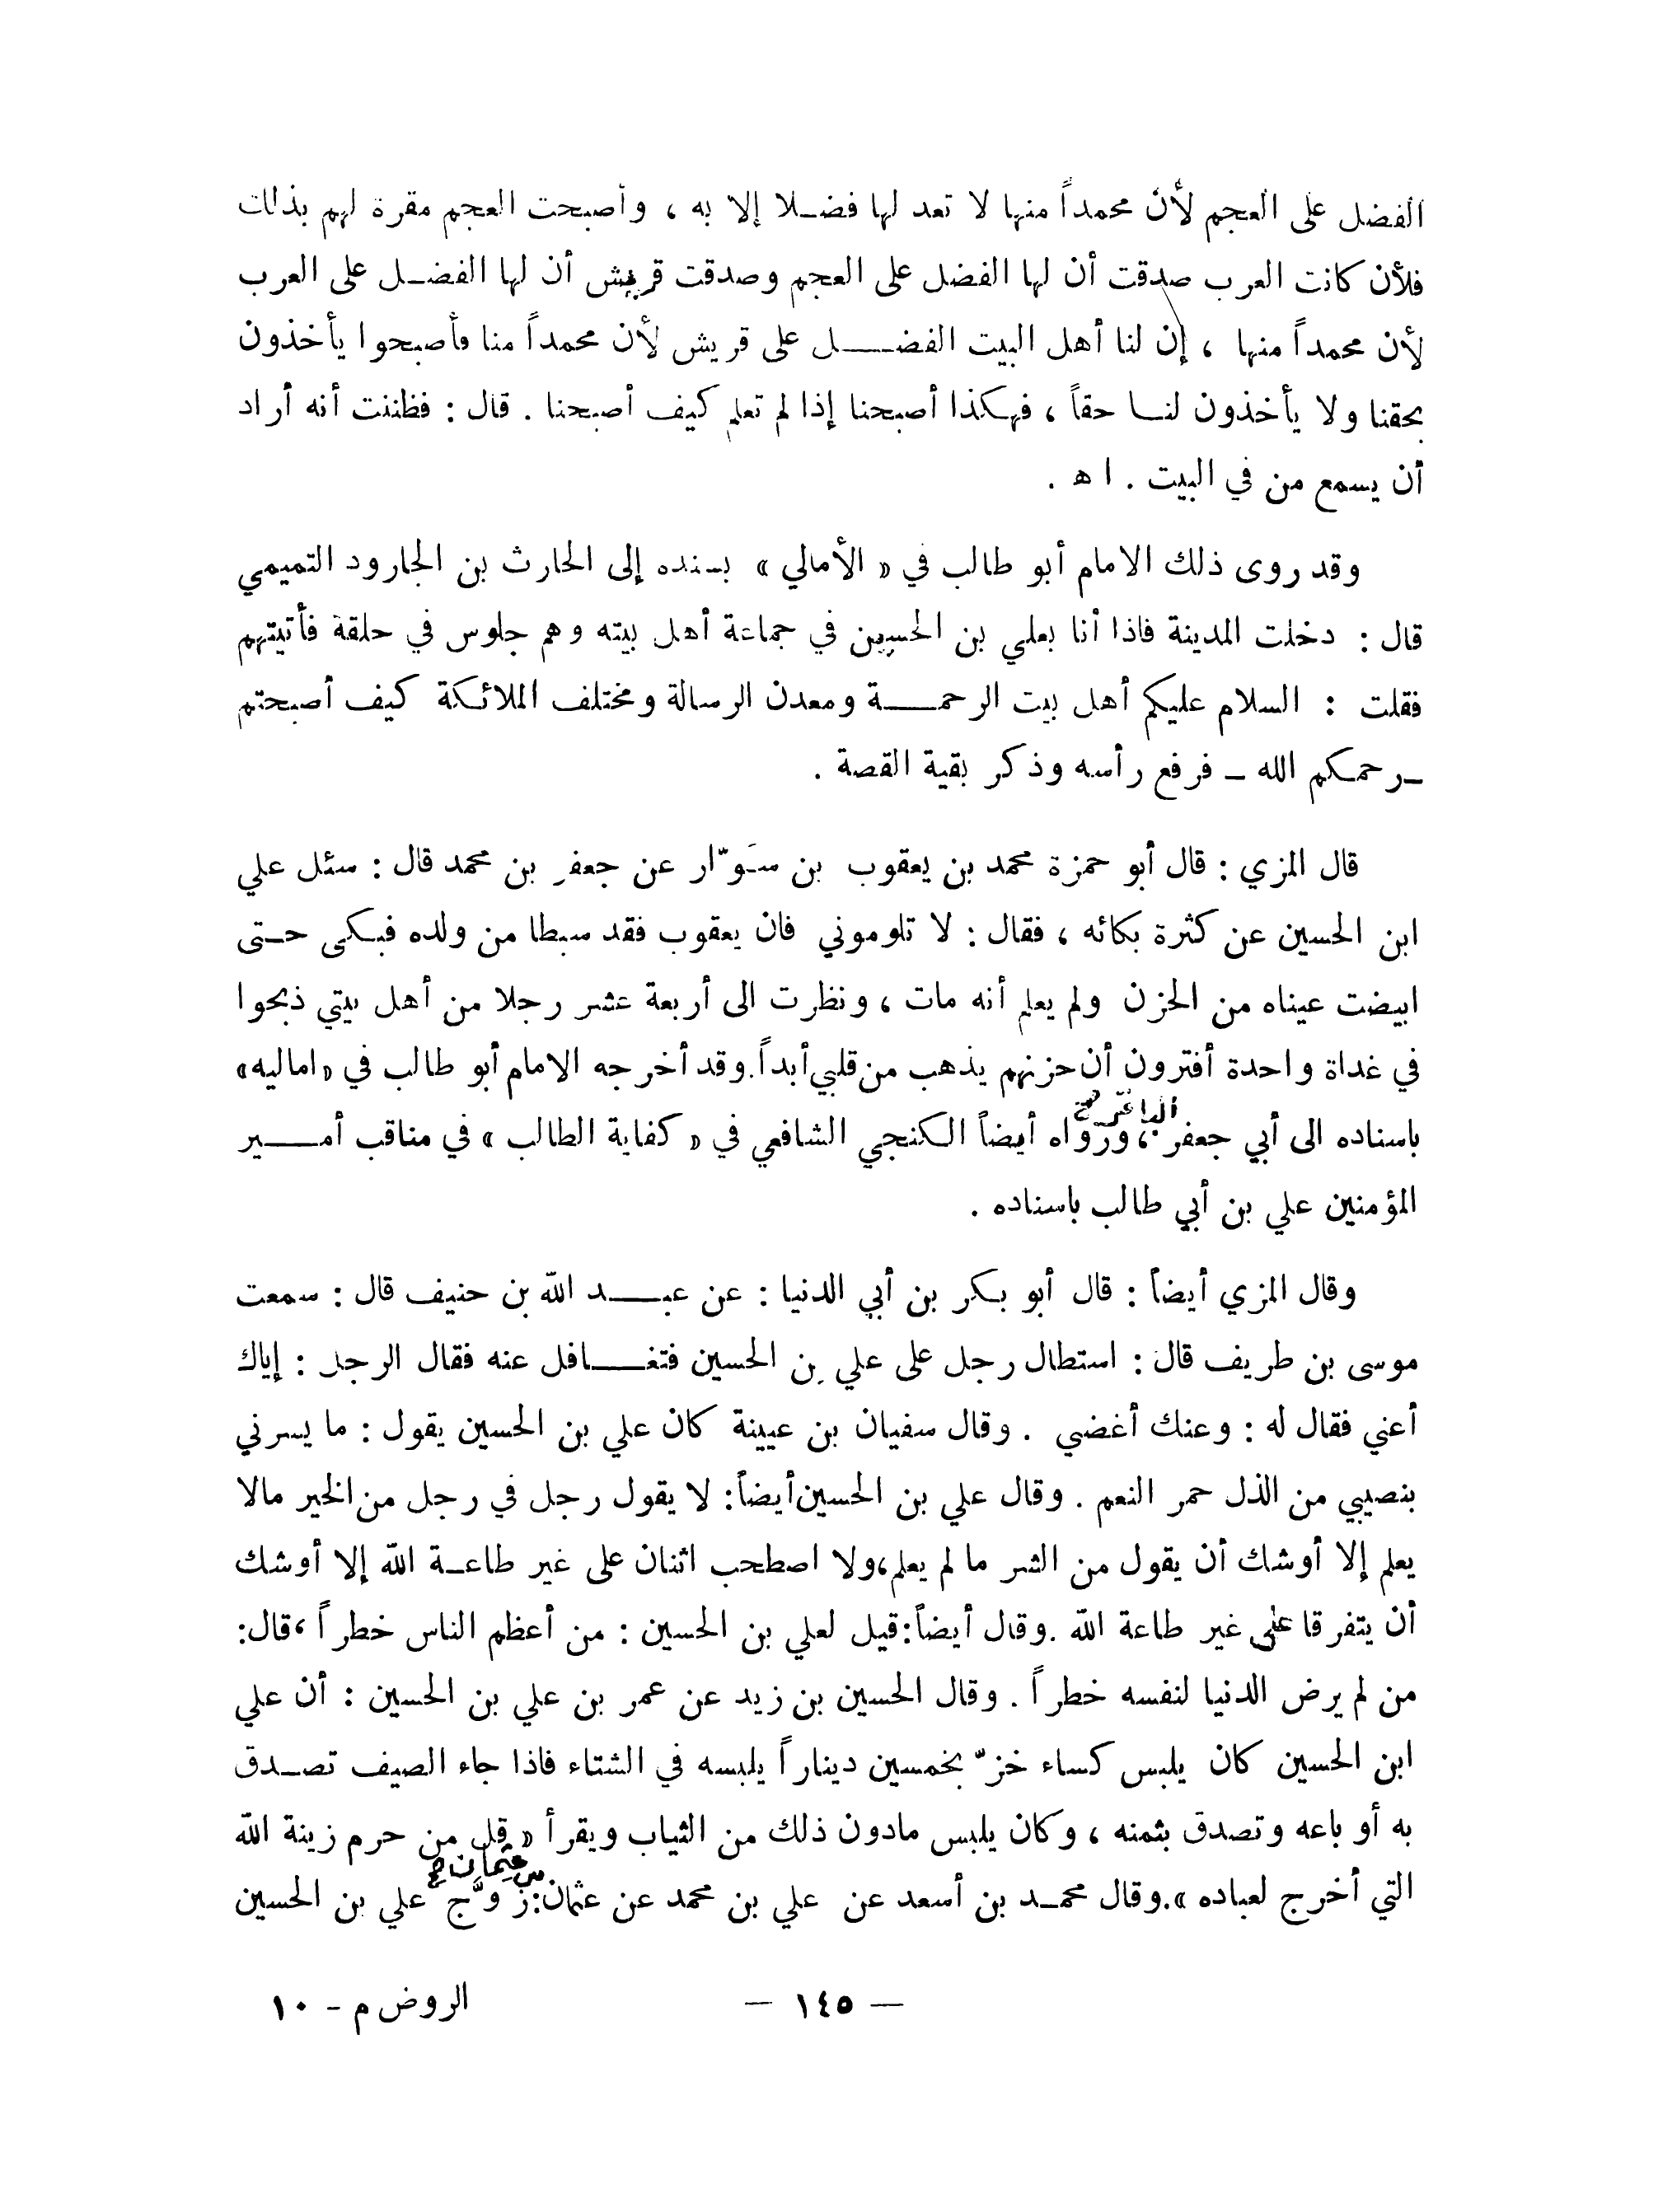 الفضل على العجم لأن محمداً منها لا تعد لها فضلا إلا به ، وأصبحت العجم مقرة لهم بذلك
فلأن كانت العرب صدقت أن لها الفضل على العجم وصدقت قريش أن لها الفضل على العرب
لأن محمداً منها ، إن لنا أهل البيت الفضل على قريش لأن محمداً منا فأصبحوا يأخذون
بحقنا ولا يأخذون لنا حقاً ، فهكذا أصبحنا إذا لم تعلم كيف أصبحنا . قال : فظننت أنه أراد
أن يسمع من في البيت . ا ه .
وقد روى ذلك الامام أبو طالب في « الأمالي » بسنده إلى الحارث بن الجارود التميمي
قال : دخلت المدينة فاذا أنا بعلي بن الحسين في جماعة أهل بيته وهم جلوس في حلقة فأتيتهم
فقلت : السلام عليكم أهل بيت الرحمة ومعدن الرسالة ومختلف الملائكة كيف أصبحتم
ـ رحمكم الله ـ فرفع رأسه وذكر بقية القصة .
قال المزي : قال أبو حمزة محمد بن يعقوب بن سَوّار عن جعفر بن محمد قال : سئل علي
ابن الحسين عن كثرة بكائه ، فقال : لا تلوموني فان يعقوب فقد سبطا من ولده فبكى حتى
ابيضت عيناه من الحزن ولم يعلم أنه مات ، ونظرت الى أربعة عشر رجلا من أهل بيتي ذبحوا
في غداة واحدة أفترون أن حزنهم يذهب من قلبي أبداً. وقد أخرجه الامام أبو طالب في « اماليه »
الباقر صح
باسناده الى أبي جعفر ، ورواه أيضاً الكنجي الشافعي في « كفاية الطالب » في مناقب أمير
المؤمنين علي بن أبي طالب باسناده .
وقال المزي أيضاً : قال أبو بكر بن أبي الدنيا : عن عبد الله بن حنيف قال : سمعت
موسى بن طريف قال : استطال رجل على علي بن الحسين فتغافل عنه فقال الرجل : إياك
أعني فقال له : وعنك أغضي . وقال سفيان بن عيينة كان علي بن الحسين يقول : ما يسرني
بنصيبي من الذل حمر النعم . وقال علي بن الحسين أيضاً: لا يقول رجل في رجل من الخير مالا
يعلم إلا أوشك أن يقول من الشر ما لم يعلم، ولا اصطحب اثنان على غير طاعة الله إلا أوشك
أن يتفرقا على غير طاعة الله .وقال أيضاً:قيل لعلي بن الحسين : من أعظم الناس خطراً ،قال:
من لم يرض الدنيا لنفسه خطراً . وقال الحسين بن زيد عن عمر بن علي بن الحسين : أن علي
ابن الحسين كان يلبس كساء خزّ بخمسين ديناراً يلبسه في الشتاء فاذا جاء الصيف تصدق
به أو باعه وتصدق بثمنه ، وكان يلبس مادون ذلك من الثياب ويقرأ « قل من حرم زينة الله
بن عثمان صح
التي أخرج لعباده ».وقال محمد بن أسعد عن علي بن محمد عن عثمان:زوَّج علي بن الحسين
— ١٤٥ — الروض م - ١٠